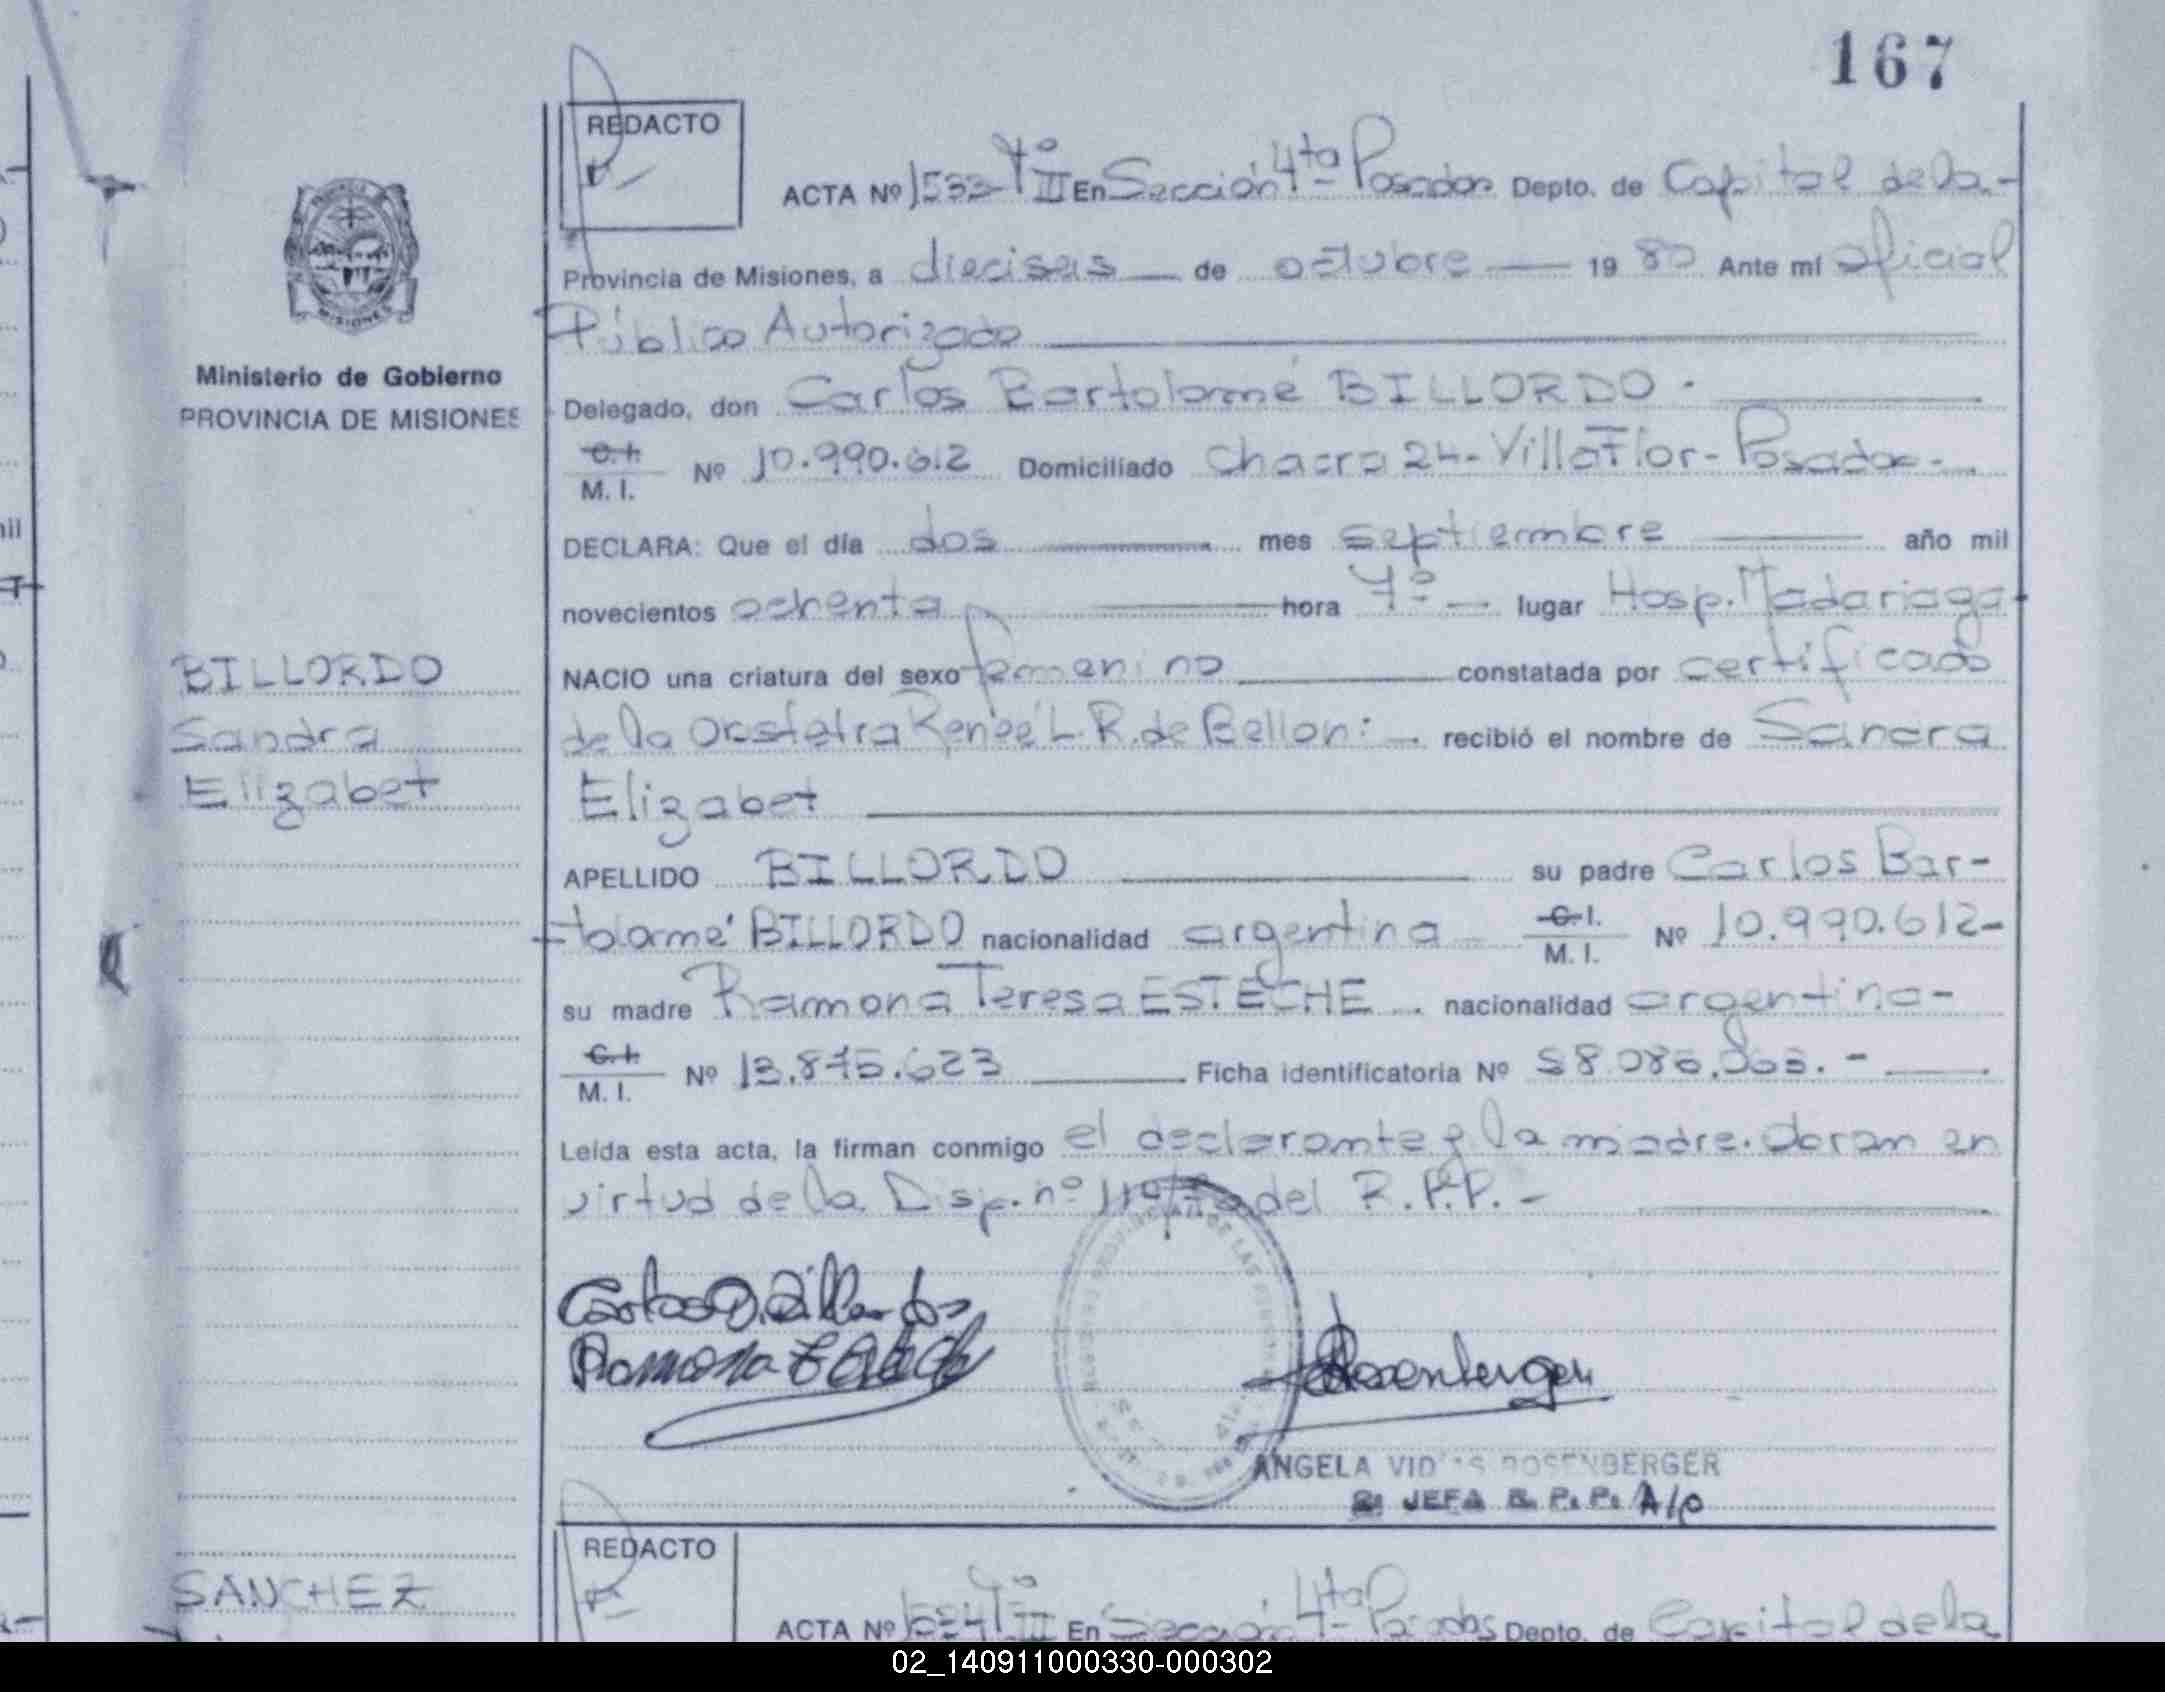 167
REDACTO
ACTA Nº 1533 Tº III En Sección 4ta Posadas Depto. de Capital de la-
Provincia de Misiones, a dieciseis de octubre 19 80 Ante mí Oficial
Público Autorizado
Delegado, don Carlos Bartolomé BILLORDO.
C.I. M.I. Nº 10.990.612 Domiciliado Chacra 24-Villa Flor-Posadas-
DECLARA: Que el día dos mes septiembre año mil
novecientos ochenta hora lugar Hosp. Madariaga
NACIO una criatura del sexo femenino constatada por certificado
de la Obstetra Renée L. R. de Bellon: recibió el nombre de Sandra
Elizabet
APELLIDO BILLORDO su padre Carlos Bar-
tolomé BILLORDO nacionalidad argentina C.I. M.I. Nº 10.990.612-
su madre Ramona Teresa ESTECHE nacionalidad argentina-
C.I. M.I. Nº 13.875.623 Ficha identificatoria Nº
Leída esta acta, la firman conmigo el declarante y la madre. Obran en
virtud de la Disp. nº del R.P.P.-
Ministerio de Gobierno
PROVINCIA DE MISIONES
MISIONES
BILLORDO
Sandra
Elizabet
Rosenberger
ANGELA ROSENBERGER
JEFA R. P. P. A/c
REDACTO
SANCHEZ
ACTA Nº 1534 Tº III En Sección 4ta Posadas Depto. de Capital de la
02_140911000330-000302